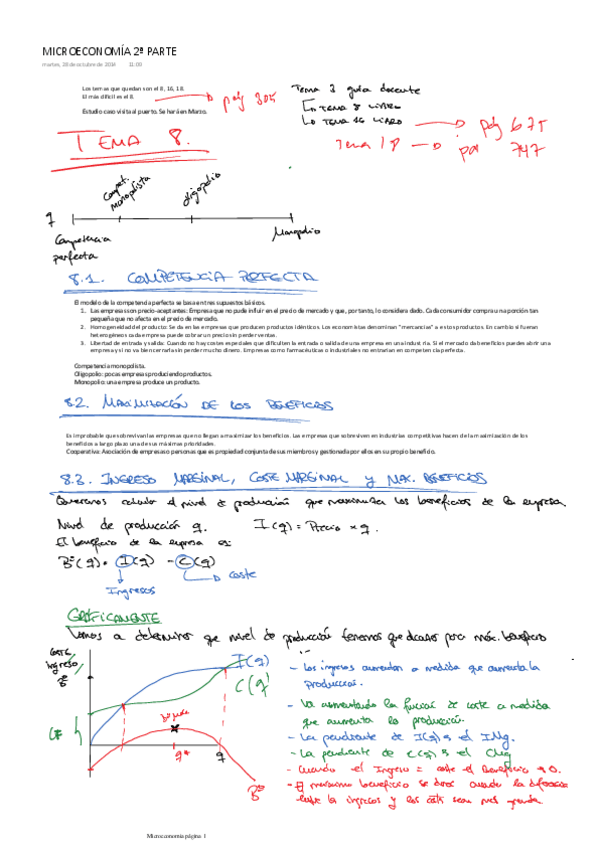 MICROECONOMÍA 2ª PARTE
martes, 28 de octubre de 2014 11:09
Los temas que quedan son el 8, 16, 18.
El más difícil es el 8.
Estudio caso visita al puerto. Se hará en Marzo.
pág 305
Tema 3 guía docente
TEMA 8 LIBRO
TEMA 16 LIBRO
pág 675
Tema 18
747
TEMA 8.
Compet. monopolista
Oligopolio
Competencia perfecta
Monopolio
8.1. COMPETENCIA PERFECTA
El modelo de la competencia perfecta se basa en tres supuestos básicos.
1. Las empresas son precio-aceptantes: Empresa que no puede influir en el precio de mercado y que, por tanto, lo considera dado. Cada consumidor compra una porción tan
pequeña que no afecta en el precio de mercado.
2. Homogeneidad del producto: Se da en las empresas que producen productos idénticos. Los economistas denominan "mercancías" a estos productos. En cambio si fueran
heterogéneos cada empresa puede cobrar un precio sin perder ventas.
3. Libertad de entrada y salida: Cuando no hay costes especiales que dificulten la entrada o salida de una empresa en una industria. Si el mercado da beneficios puedes abrir una
empresa y si no va bien cerrarla sin perder mucho dinero. Empresas como farmacéuticas o industriales no entrarían en competencia perfecta.
Competencia monopolista.
Oligopolio: pocas empresas produciendo productos.
Monopolio: una empresa produce un producto.
8.2. MAXIMIZACIÓN DE LOS BENEFICIOS
Es improbable que sobrevivan las empresas que no llegan a maximizar los beneficios. Las empresas que sobreviven en industrias competitivas hacen de la maximización de los
beneficios a largo plazo una de sus máximas prioridades.
Cooperativa: Asociación de empresas o personas que es propiedad conjunta de sus miembros y gestionada por ellos en su propio beneficio.
8.3. INGRESO MARGINAL, COSTE MARGINAL Y MAX. BENEFICIOS
Queremos calcular el nivel de producción que maximiza los beneficios de la empresa.
Nivel de producción q. I(q) = Precio × q.
El beneficio de la empresa es:
Bº(q) = I(q) - C(q)
Ingresos
coste
GRÁFICAMENTE
Vamos a determinar que nivel de producción tenemos que alcanzar para máx. beneficio
Coste/
ingreso/
Bº
I(q)
C(q)
CF
q*
q
Bº
- Los ingresos aumentan a medida que aumenta la
producción.
- Va aumentando la función de coste a medida
que aumenta la producción.
- La pendiente de I(q) es el IMg.
- La pendiente de C(q) es el CMg
- Cuando el Ingreso = coste el Beneficio es 0.
- El máximo beneficio se dará cuando la diferencia
entre los ingresos y los costes sea más grande
Microeconomía página 1